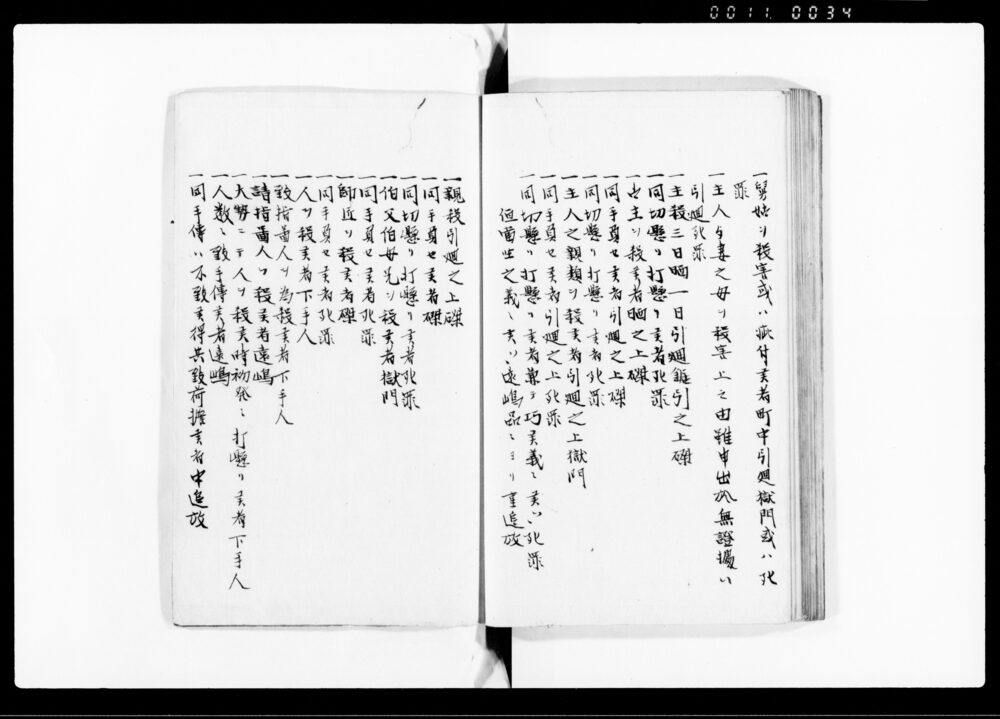 0011. 0034
一舅姑ヲ殺害或ハ疵付候者町中引廻獄門或ハ死
罪
一主人ヲ妻之母ヲ殺害上之由雖申出於無證據ハ
引廻死罪
一主殺三日晒一日引廻鋸引之上磔
一同切懸リ打懸リ候者死罪
一古主ヲ殺候者晒之上磔
一同手負せ候者引廻之上磔
一同切懸リ打懸リ候者死罪
一主人之親類ヲ殺候者引廻之上獄門
一同手負せ候者引廻之上死罪
一同切懸リ打懸リ候者兼テ巧候義ニ候ハ死罪
但當座之義ニ候ハ遠嶋品ニヨリ重追放
一親殺引廻之上磔
一同手負せ候者磔
一同切懸リ打懸リ候者死罪
一伯父伯母兄ヲ殺候者獄門
一同手負せ候者死罪
一師匠ヲ殺候者磔
一同手負せ候者死罪
一人ヲ殺候者下手人
一致指圖人ヲ為殺候者下手人
一請指圖人ヲ殺候者遠嶋
一大勢ニテ人ヲ殺候時初発ニ打懸リ候者下手人
一人数ニ致手傳候者遠嶋
一同手傳ハ不致候得共致荷擔候者中追放